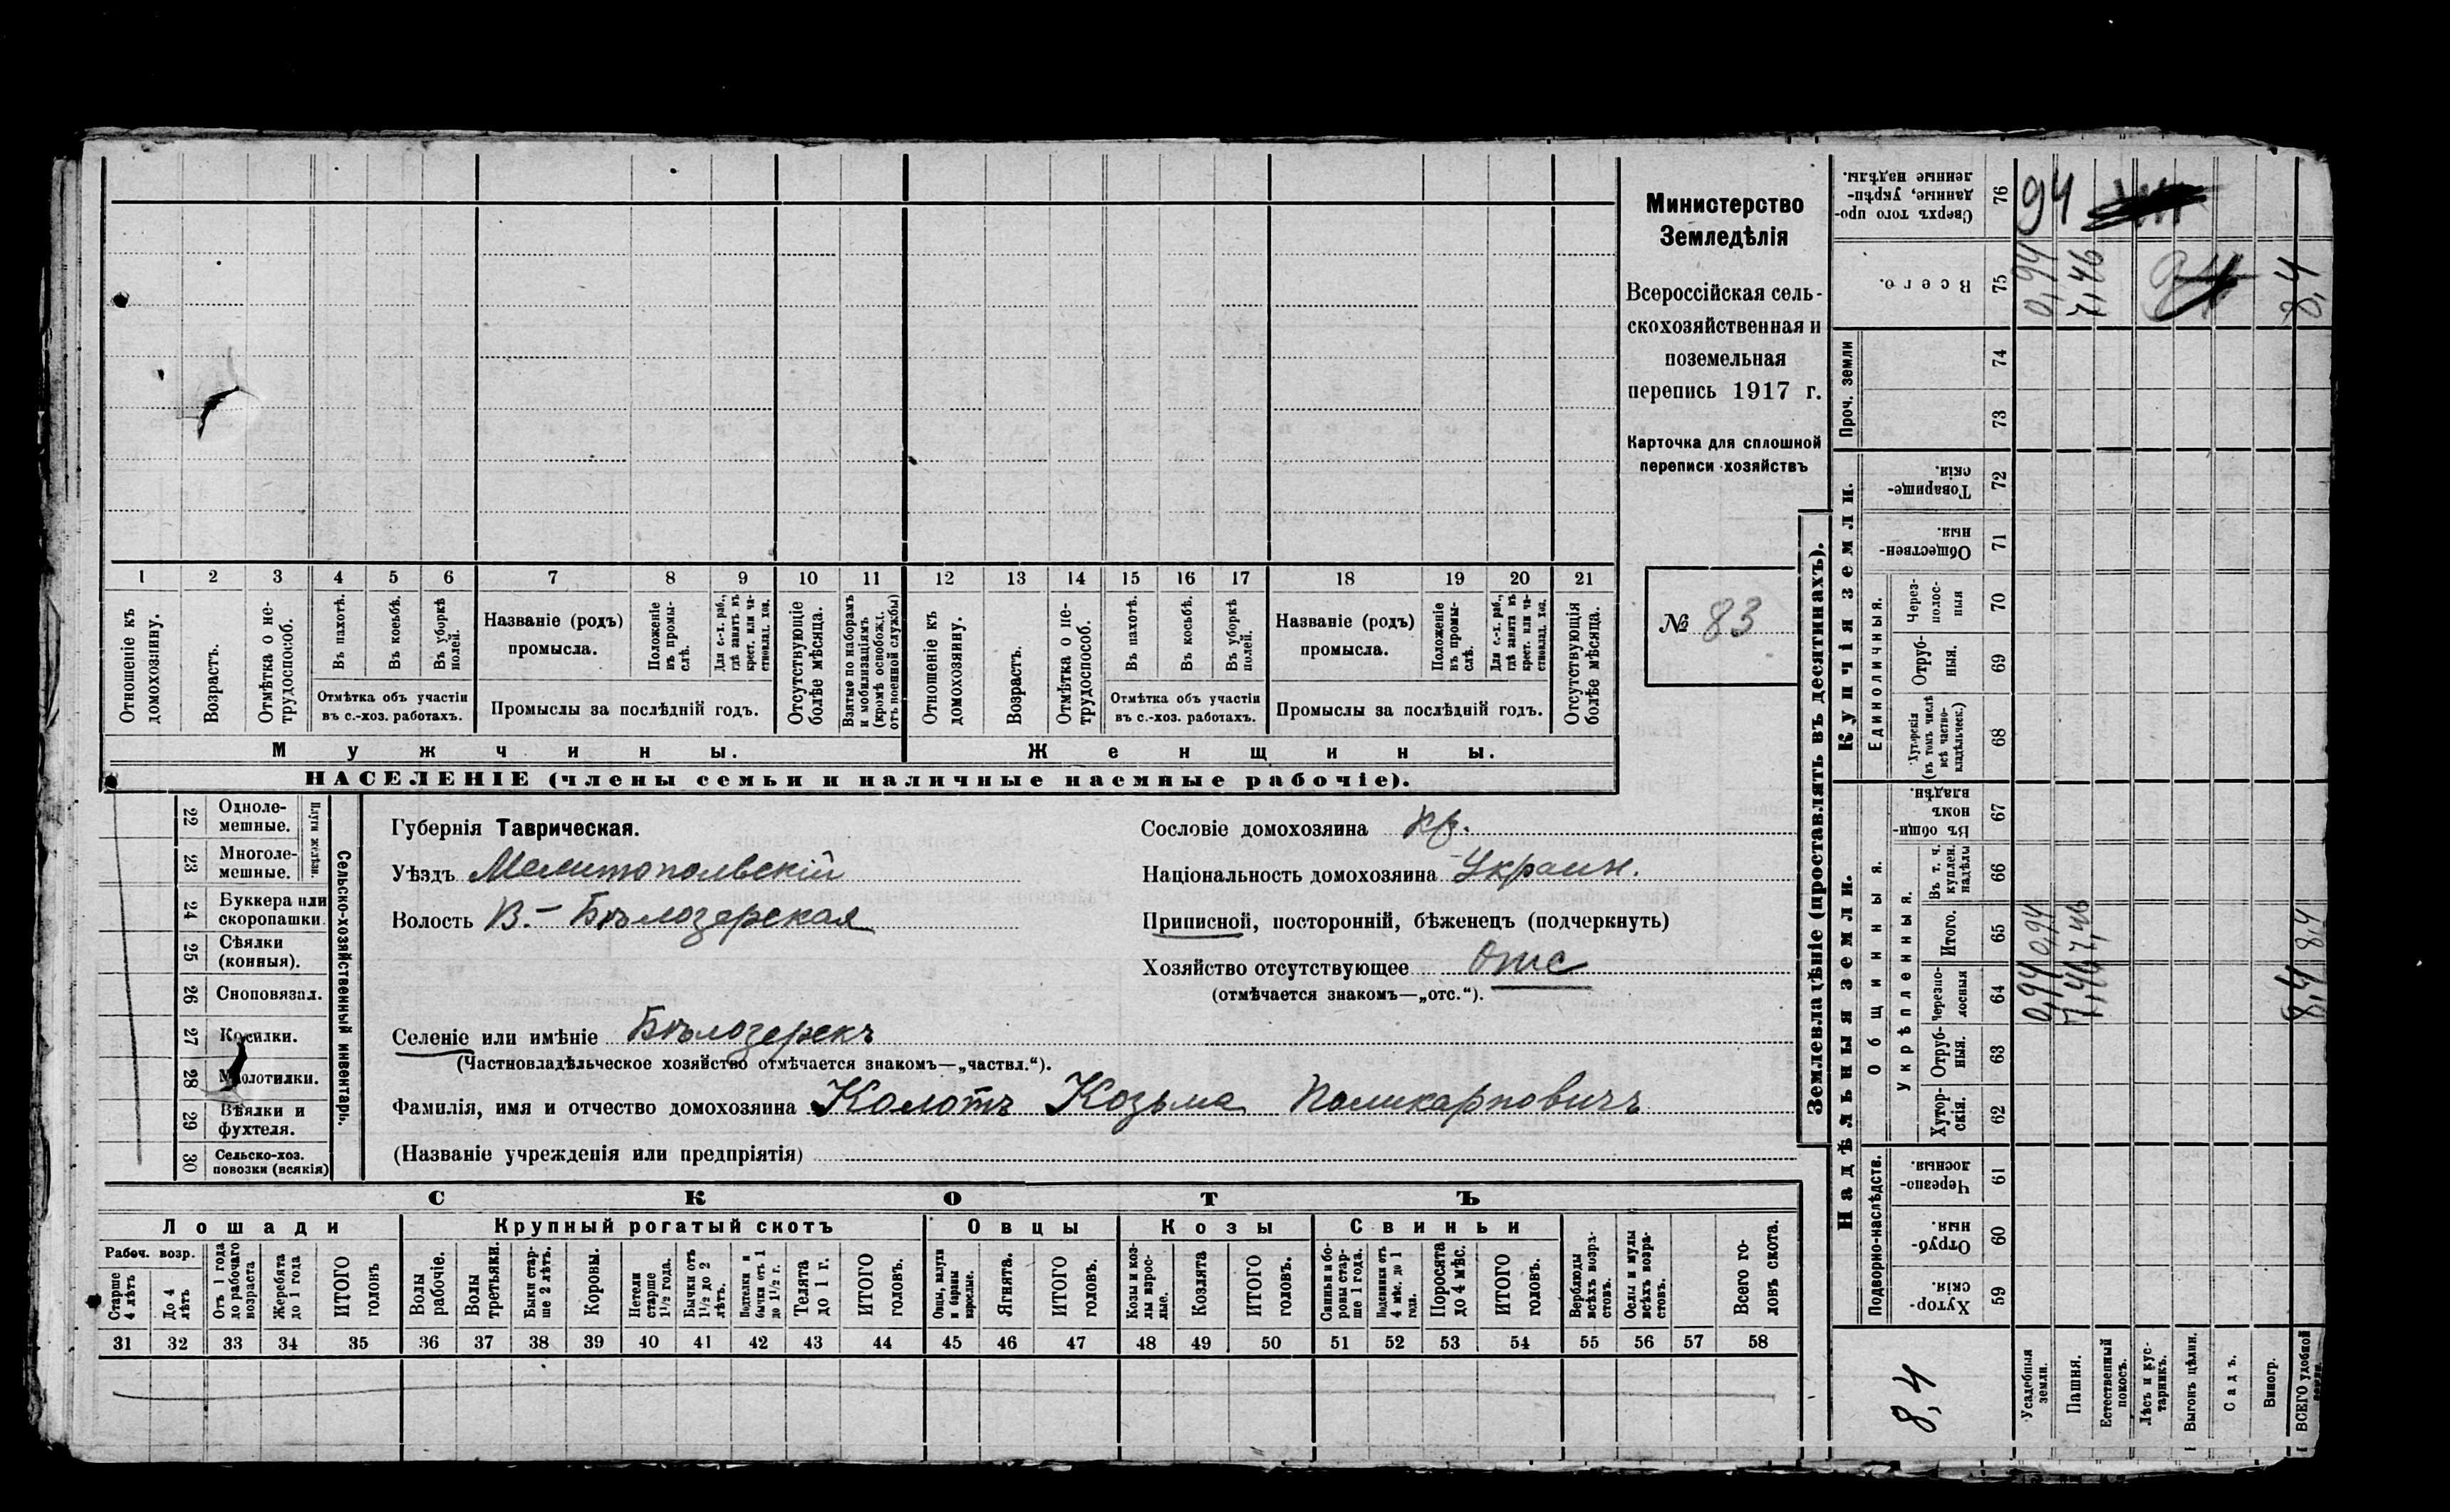 Министерство
Земледѣлія
Всероссійская сель-
скохозяйственная и
поземельная
перепись 1917 г.
Карточка для сплошной
переписи хозяйствъ
№ 83
1 2 3 4 5 6 7 8 9 10 11 12 13 14 15 16 17 18 19 20 21
Отношеніе къ домохозяину.
Возрастъ.
Отмѣтка о не-трудоспособ.
Въ пахотѣ.
Въ косьбѣ.
Въ уборкѣ полей.
Отмѣтка объ участіи
въ с.-хоз. работахъ.
Названіе (родъ)
промысла.
Положеніе въ промы-слѣ.
Для с.-х. раб., гдѣ занятъ въ крест. или ча-стновлад. хоз.
Промыслы за послѣдній годъ.
Отсутствующіе болѣе мѣсяца.
Взятые по наборамъ и мобилизаціямъ (кромѣ освобожд. отъ военной службы)
Отношеніе къ домохозяину.
Возрастъ.
Отмѣтка о не-трудоспособ.
Въ пахотѣ.
Въ косьбѣ.
Въ уборкѣ полей.
Отмѣтка объ участіи
въ с.-хоз. работахъ.
Названіе (родъ)
промысла.
Положеніе въ промы-слѣ.
Для с.-х. раб., гдѣ занята въ крест. или ча-стновлад. хоз.
Промыслы за послѣдній годъ.
Отсутствующія болѣе мѣсяца.
Мужчины.
Женщины.
НАСЕЛЕНІЕ (члены семьи и наличные наемные рабочіе).
22 Одноле-мешные.
23 Многоле-мешные.
Плуги желѣзн.
24 Буккера или скоропашки
25 Сѣялки (конныя).
26 Сноповязал.
27 Косилки.
28 Молотилки.
29 Вѣялки и фухтеля.
30 Сельско-хоз. повозки (всякія)
Сельско-хозяйственный инвентарь.
Губернія Таврическая.
Уѣздъ Мелитопольскій
Волость В.- Бѣлозерская
Сословіе домохозяина кр.
Національность домохозяина Украин.
Приписной, посторонній, бѣженецъ (подчеркнуть)
Хозяйство отсутствующее Отс
(отмѣчается знакомъ—„отс.“).
Селеніе или имѣніе Бѣлозерекъ
(Частновладѣльческое хозяйство отмѣчается знакомъ—„частвл.“).
Фамилія, имя и отчество домохозяина Колотъ Козьма Поликарповичъ
(Названіе учрежденія или предпріятія)
СКОТЪ
Лошади
Крупный рогатый скотъ
Овцы
Козы
Свиньи
Рабоч. возр.
Старше 4 лѣтъ
До 4 лѣтъ
Отъ 1 года до рабочаго возраста
Жеребята до 1 года
ИТОГО головъ
Волы рабочіе.
Волы третьяки.
Быки стар-ше 2 лѣтъ.
Коровы.
Нетели старше 1½ года.
Бычки отъ 1½ до 2 лѣтъ.
Подтелки и бычки отъ 1 до 1½ г.
Телята до 1 г.
ИТОГО головъ.
Овцы, валухи и бараны взрослые.
Ягнята.
ИТОГО головъ.
Козы и коз-лы взрос-лые.
Козлята
ИТОГО головъ.
Свиньи и бо-ровы стар-ше 1 года.
Подсвинки отъ 4 мѣс. до 1 года.
Поросята до 4 мѣс.
ИТОГО головъ.
Верблюды всѣхъ возра-стовъ.
Ослы и мулы всѣхъ возра-стовъ.
Всего го-ловъ скота.
31 32 33 34 35 36 37 38 39 40 41 42 43 44 45 46 47 48 49 50 51 52 53 54 55 56 57 58
Землевладѣніе (проставлять въ десятинахъ).
Сверхъ того про-данные, укрѣп-ленные надѣлы. 76 94
Всего. 75 0,94 7,46 8,4
Проч. земли
74
73
Купчія земли.
Товарище-скія. 72
Обществен-ныя. 71
Единоличныя.
Через-полос-ныя 70
Отруб-ныя. 69
Хуторскія (въ томъ числѣ всѣ частно-владѣльческ.) 68
Надѣльныя земли.
Общинныя.
Въ общи-номъ владѣн. 67
Укрѣпленныя.
Въ т. ч. куплен. надѣлы 66
Итого. 65 0,94 7,46 8,4
Черезпо-лосныя 64 0,94 7,46 8,4
Отруб-ныя. 63
Хутор-скія. 62
Подворно-наслѣдств.
Черезпо-лосныя. 61
Отруб-ныя. 60
Хутор-скія. 59
8,4
Усадебныя земли.
Пашня.
Естественный покосъ.
Лѣсъ и кус-тарникъ.
Выгонъ цѣлин.
Садъ.
Виногр.
ВСЕГО удобной земли.